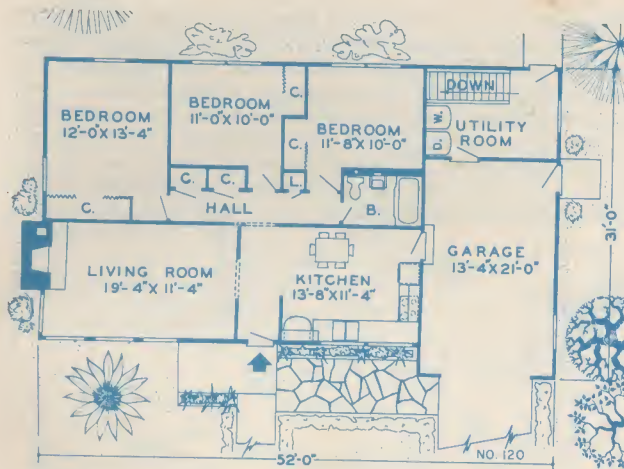 BEDROOM
12'-0" X 13'-4"
BEDROOM
11'-0" X 10'-0"
C.
C.
BEDROOM
11'-8" X 10'-0"
DOWN
W.
D.
UTILITY
ROOM
C.
C.
L.
C.
HALL
B.
LIVING ROOM
19'-4" X 11'-4"
KITCHEN
13'-8" X 11'-4"
GARAGE
13'-4 X 21'-0"
31'-0"
52'-0"
NO. 120